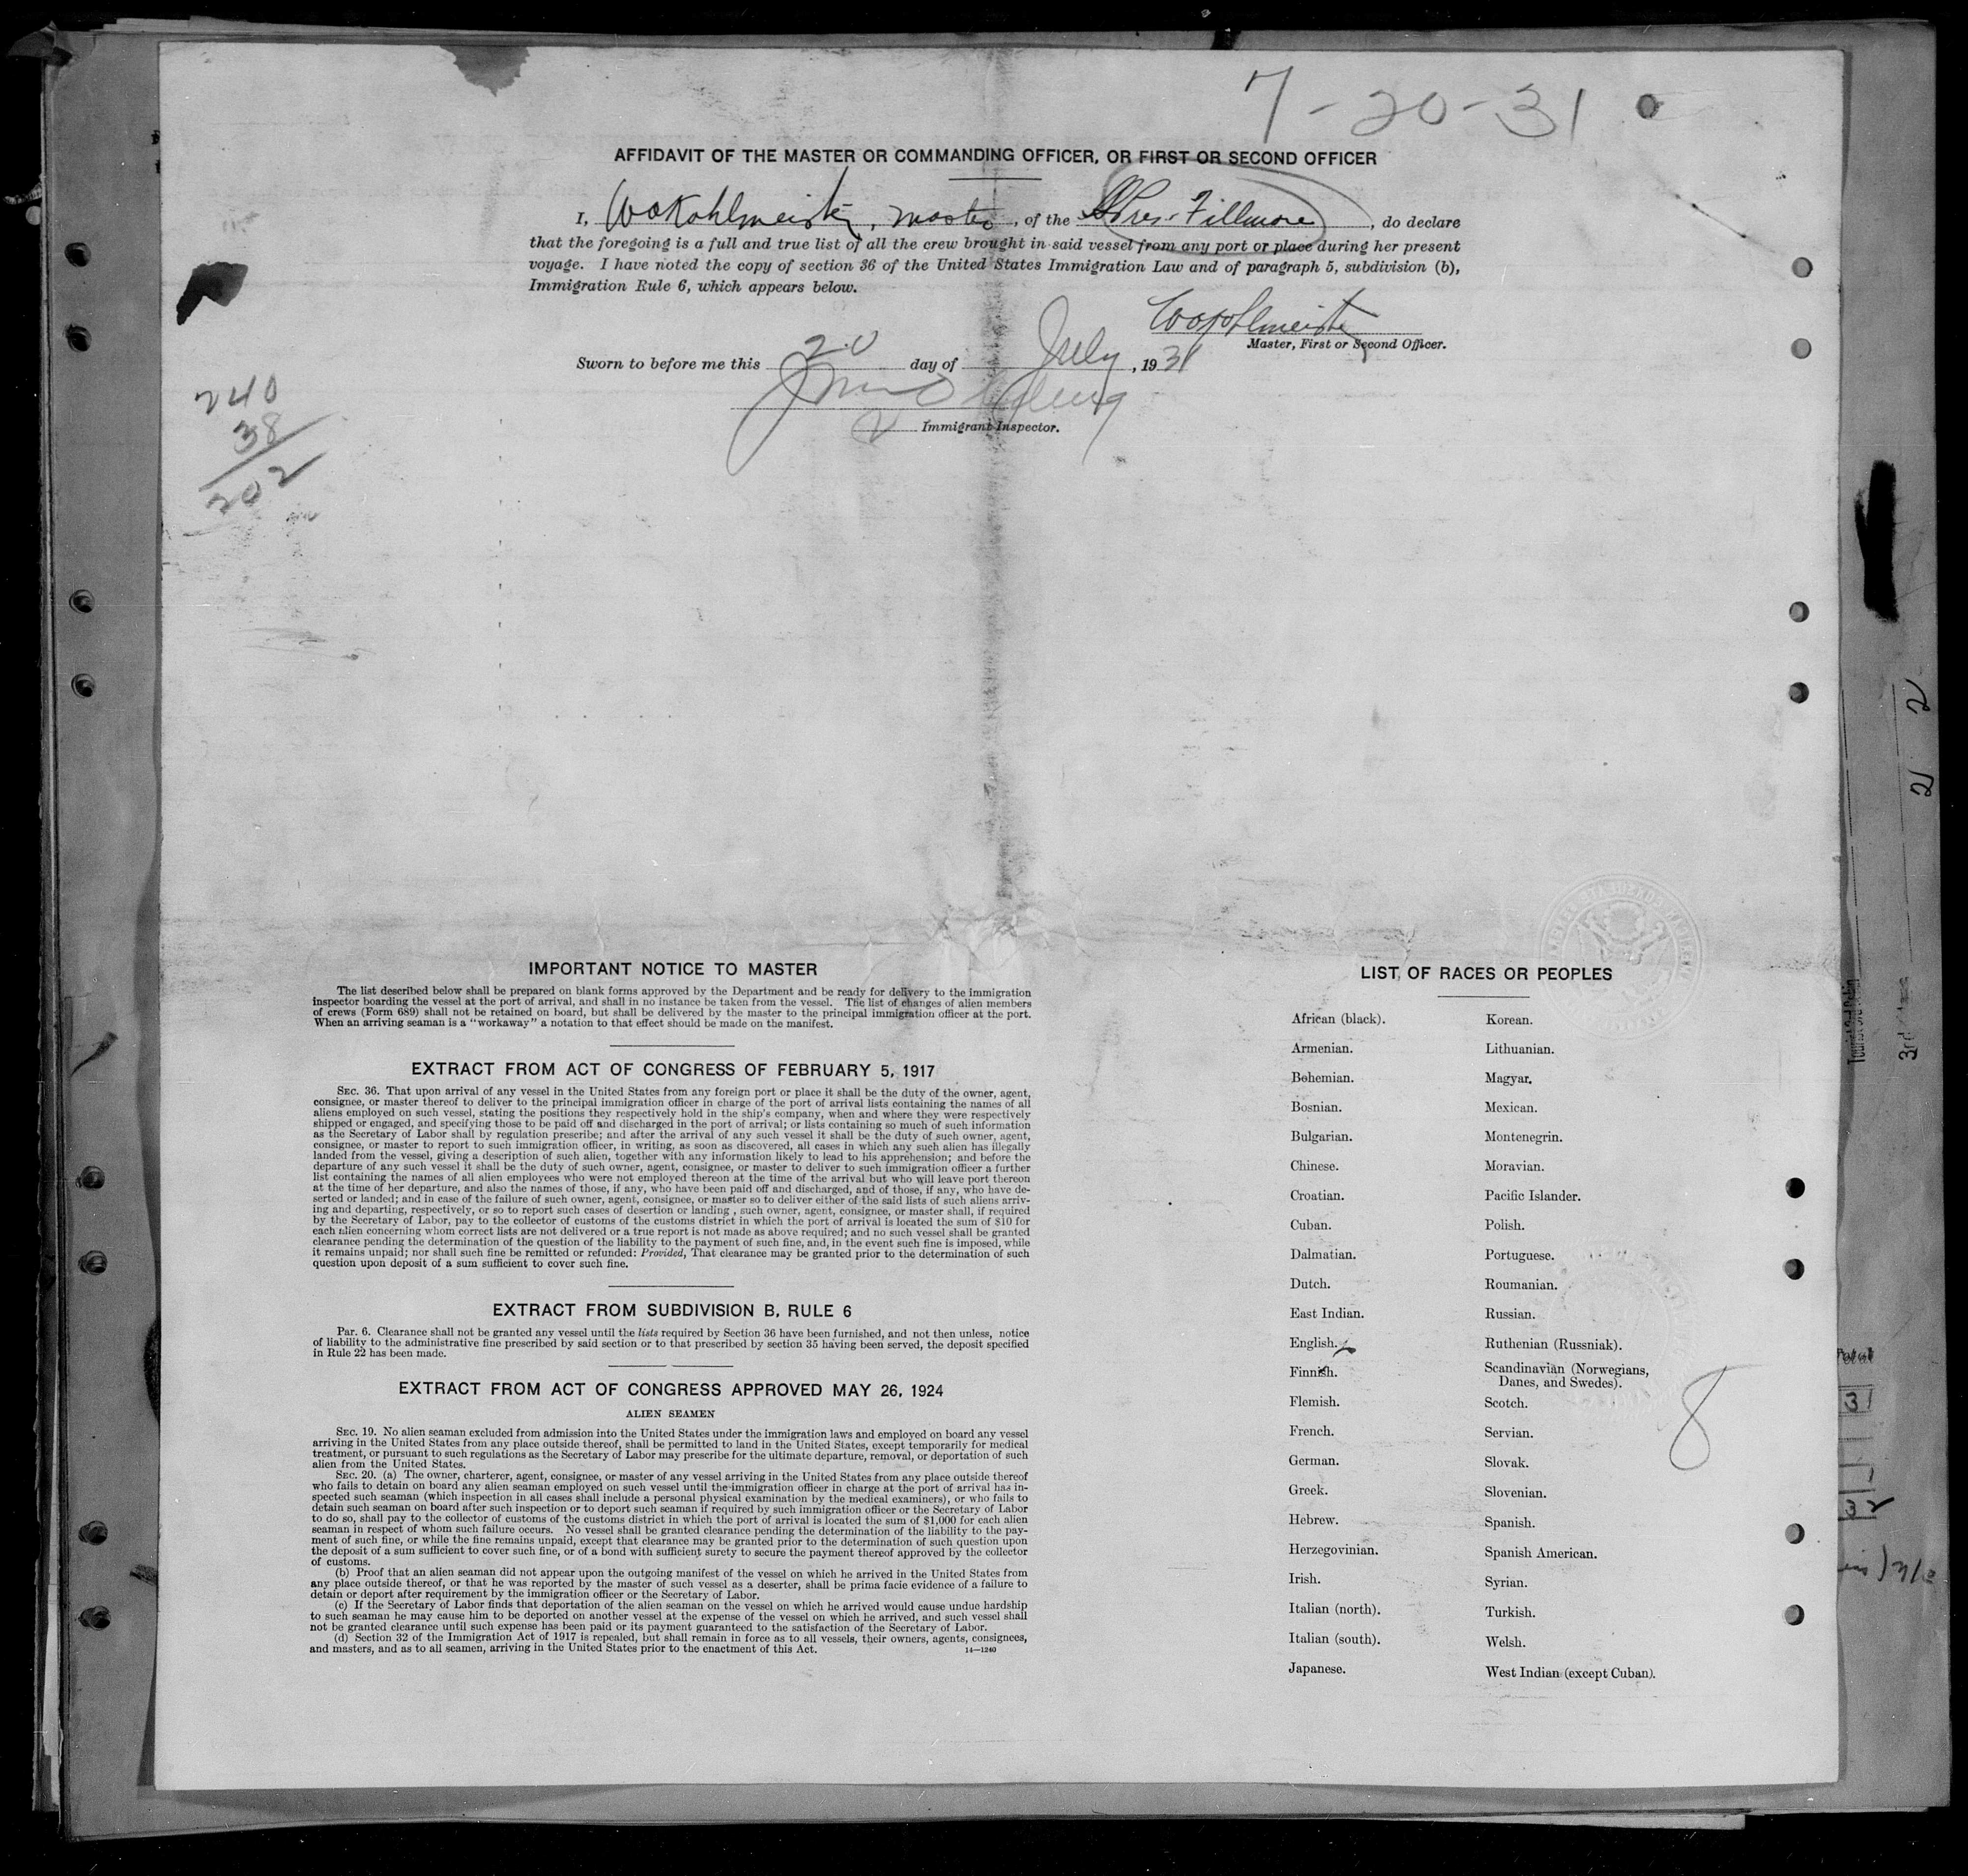 7-20-31
AFFIDAVIT OF THE MASTER OR COMMANDING OFFICER, OR FIRST OR SECOND OFFICER
I, W A Kohlmeister, master, of the SS Pres. Fillmore, do declare
that the foregoing is a full and true list of all the crew brought in said vessel from any port or place during her present
voyage. I have noted the copy of section 36 of the United States Immigration Law and of paragraph 5, subdivision (b),
Immigration Rule 6, which appears below.
Master, First or Second Officer.
Sworn to before me this 20 day of July, 1931
Immigrant Inspector.
240
38
202
IMPORTANT NOTICE TO MASTER
The list described below shall be prepared on blank forms approved by the Department and be ready for delivery to the immigration
inspector boarding the vessel at the port of arrival, and shall in no instance be taken from the vessel. The list of changes of alien members
of crews (Form 689) shall not be retained on board, but shall be delivered by the master to the principal immigration officer at the port.
When an arriving seaman is a "workaway" a notation to that effect should be made on the manifest.
EXTRACT FROM ACT OF CONGRESS OF FEBRUARY 5, 1917
SEC. 36. That upon arrival of any vessel in the United States from any foreign port or place it shall be the duty of the owner, agent,
consignee, or master thereof to deliver to the principal immigration officer in charge of the port of arrival lists containing the names of all
aliens employed on such vessel, stating the positions they respectively hold in the ship's company, when and where they were respectively
shipped or engaged, and specifying those to be paid off and discharged in the port of arrival; or lists containing so much of such information
as the Secretary of Labor shall by regulation prescribe; and after the arrival of any such vessel it shall be the duty of such owner, agent,
consignee, or master to report to such immigration officer, in writing, as soon as discovered, all cases in which any such alien has illegally
landed from the vessel, giving a description of such alien, together with any information likely to lead to his apprehension; and before the
departure of any such vessel it shall be the duty of such owner, agent, consignee, or master to deliver to such immigration officer a further
list containing the names of all alien employees who were not employed thereon at the time of the arrival but who will leave port thereon
at the time of her departure, and also the names of those, if any, who have been paid off and discharged, and of those, if any, who have de-
serted or landed; and in case of the failure of such owner, agent, consignee, or master so to deliver either of the said lists of such aliens arriv-
ing and departing, respectively, or so to report such cases of desertion or landing , such owner, agent, consignee, or master shall, if required
by the Secretary of Labor, pay to the collector of customs of the customs district in which the port of arrival is located the sum of $10 for
each alien concerning whom correct lists are not delivered or a true report is not made as above required; and no such vessel shall be granted
clearance pending the determination of the question of the liability to the payment of such fine, and, in the event such fine is imposed, while
it remains unpaid; nor shall such fine be remitted or refunded: Provided, That clearance may be granted prior to the determination of such
question upon deposit of a sum sufficient to cover such fine.
EXTRACT FROM SUBDIVISION B, RULE 6
Par. 6. Clearance shall not be granted any vessel until the lists required by Section 36 have been furnished, and not then unless, notice
of liability to the administrative fine prescribed by said section or to that prescribed by section 35 having been served, the deposit specified
in Rule 22 has been made.
EXTRACT FROM ACT OF CONGRESS APPROVED MAY 26, 1924
ALIEN SEAMEN
SEC. 19. No alien seaman excluded from admission into the United States under the immigration laws and employed on board any vessel
arriving in the United States from any place outside thereof, shall be permitted to land in the United States, except temporarily for medical
treatment, or pursuant to such regulations as the Secretary of Labor may prescribe for the ultimate departure, removal, or deportation of such
alien from the United States.
SEC. 20. (a) The owner, charterer, agent, consignee, or master of any vessel arriving in the United States from any place outside thereof
who fails to detain on board any alien seaman employed on such vessel until the immigration officer in charge at the port of arrival has in-
spected such seaman (which inspection in all cases shall include a personal physical examination by the medical examiners), or who fails to
detain such seaman on board after such inspection or to deport such seaman if required by such immigration officer or the Secretary of Labor
to do so, shall pay to the collector of customs of the customs district in which the port of arrival is located the sum of $1,000 for each alien
seaman in respect of whom such failure occurs. No vessel shall be granted clearance pending the determination of the liability to the pay-
ment of such fine, or while the fine remains unpaid, except that clearance may be granted prior to the determination of such question upon
the deposit of a sum sufficient to cover such fine, or of a bond with sufficient surety to secure the payment thereof approved by the collector
of customs.
(b) Proof that an alien seaman did not appear upon the outgoing manifest of the vessel on which he arrived in the United States from
any place outside thereof, or that he was reported by the master of such vessel as a deserter, shall be prima facie evidence of a failure to
detain or deport after requirement by the immigration officer or the Secretary of Labor.
(c) If the Secretary of Labor finds that deportation of the alien seaman on the vessel on which he arrived would cause undue hardship
to such seaman he may cause him to be deported on another vessel at the expense of the vessel on which he arrived, and such vessel shall
not be granted clearance until such expense has been paid or its payment guaranteed to the satisfaction of the Secretary of Labor.
(d) Section 32 of the Immigration Act of 1917 is repealed, but shall remain in force as to all vessels, their owners, agents, consignees,
and masters, and as to all seamen, arriving in the United States prior to the enactment of this Act.
14—1240
LIST OF RACES OR PEOPLES
African (black).
Armenian.
Bohemian.
Bosnian.
Bulgarian.
Chinese.
Croatian.
Cuban.
Dalmatian.
Dutch.
East Indian.
English.
Finnish.
Flemish.
French.
German.
Greek.
Hebrew.
Herzegovinian.
Irish.
Italian (north).
Italian (south).
Japanese.
Korean.
Lithuanian.
Magyar.
Mexican.
Montenegrin.
Moravian.
Pacific Islander.
Polish.
Portuguese.
Roumanian.
Russian.
Ruthenian (Russniak).
Scandinavian (Norwegians,
Danes, and Swedes).
Scotch.
Servian.
Slovak.
Slovenian.
Spanish.
Spanish American.
Syrian.
Turkish.
Welsh.
West Indian (except Cuban).
8
31
32